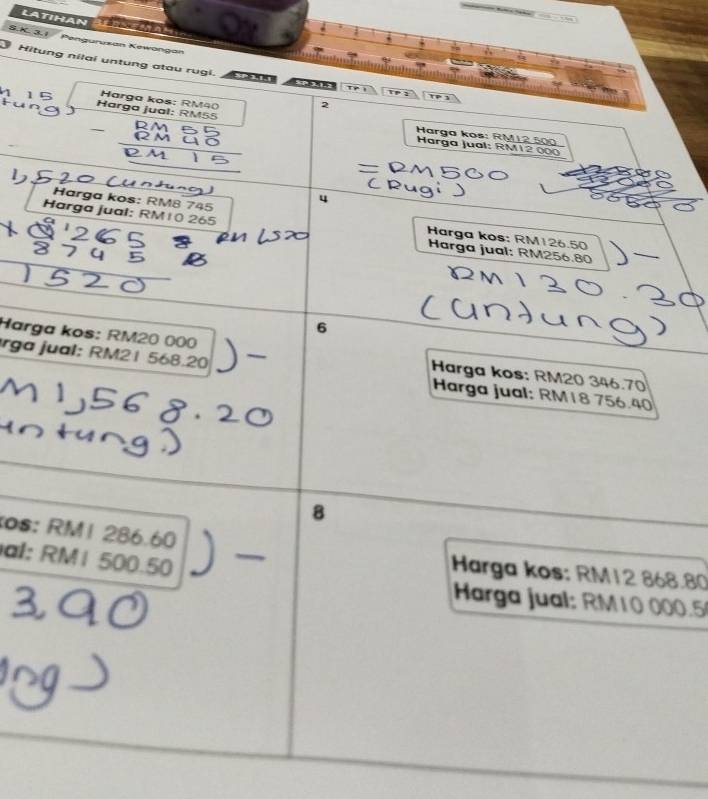 LATIHAN
S.K. 3.1 Pengurusan Kewangan
Hitung nilai untung atau rugi. SP 3.1.1 SP 3.1.2 TP 1 TP 2 TP 3
Harga kos: RM40
Harga jual: RM55
15
tung)
RM 55
- RM 40
RM 15
2
Harga kos: RM12 500
Harga jual: RM12 000
= RM500
(Rugi)
1,520 (untung)
Harga kos: RM8 745
Harga jual: RM10 265
265
8745
1520
RM 1,520
4
Harga kos: RM126.50
Harga jual: RM256.80
) -
RM130.30
(untung)
Harga kos: RM20 000
rga jual: RM21 568.20
) -
M1,568.20
untung)
6
Harga kos: RM20 346.70
Harga jual: RM18 756.40
kos: RM1 286.60
al: RM1 500.50
) -
3.90
ng)
8
Harga kos: RM12 868.80
Harga jual: RM10 000.5